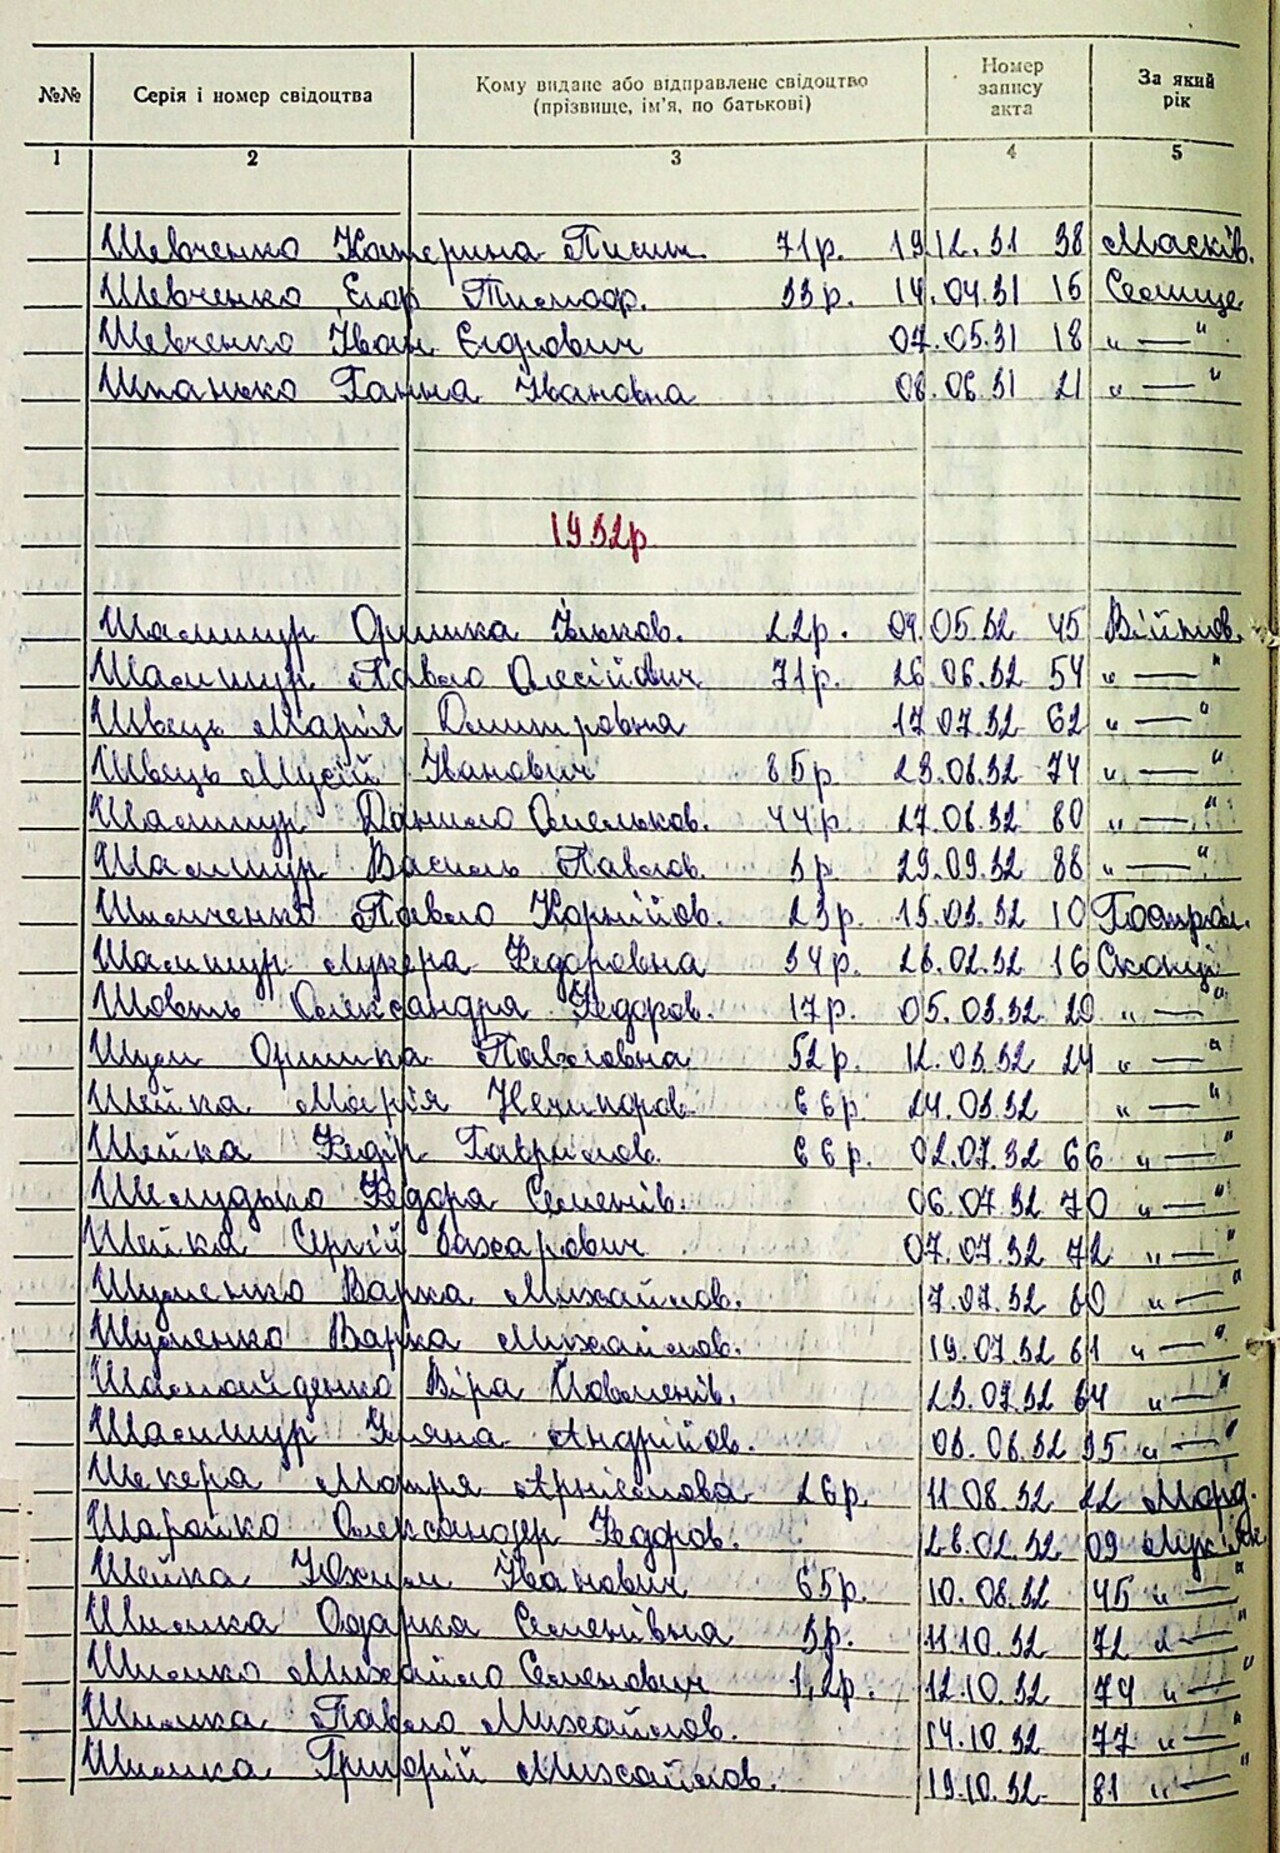 №№ Серія і номер свідоцтва Кому видане або відправлене свідоцтво (прізвище, ім'я, по батькові) Номер запису акта За який рік
1 2 3 4 5
Шевченко Катерина 71р. 19.12.31 38 Маськів.
Шевченко Єгор Тимоф. 33р. 14.04.31 16 Селище
Шевченко Іван Єгорович 07.05.31 18 „—"
Шпанько Ганна Івановна 06.06.31 21 „—"
1932р.
Шалимур Оришка Ільков. 22р. 09.05.32 45 Війтов.
Шалимур Павло Олесійович 71р. 26.06.32 54 „—"
Швець Марія Дмитровна 17.07.32 62 „—"
Швець Мусій Іванович 65р. 23.08.32 74 „—"
Шалимур Данило Омельков. 44р. 27.08.32 80 „—"
Шалимур Василь Павлов. 3р. 29.09.32 88 „—"
Шинченко Павло Корнійов. 23р. 15.03.32 10
Шалимур Мукера Федоровна 34р. 28.02.32 16 Скопці
Шовть Олександра Федоров. 17р. 05.03.32 20 „—"
Шум Оришка Павловна 52р. 12.03.32 24 „—"
Шейка Марія Нечипоров. 66р. 24.03.32 „—"
Шейка Федір Гаврилов. 66р. 02.07.32 66 „—"
Шелудько Федора Семенів. 06.07.32 70 „—"
Шейка Сергій Захарович 07.07.32 72 „—"
Шуменко Варка Михайлов. 17.07.32 80 „—"
Шуменко Варка Михайлов. 19.07.32 81 „—"
Віра 23.07.32 84 „—"
Шалимур Уляна Андрійов. 03.08.32 95 „—"
Шекера Мотря 26р. 11.08.32 22 Морд.
Шарайко Олександер Федоров. 28.02.32 09
Шейка Юхим Іванович 65р. 10.08.32 45 „—"
Шишка Одарка Семенівна 3р. 11.10.32 72 „—"
Шишко Михайло Семенович 1,2р. 12.10.32 74 „—"
Шишка Павло Михайлов. 14.10.32 77 „—"
Шишка Григорій Михайлов. 19.10.32 81 „—"